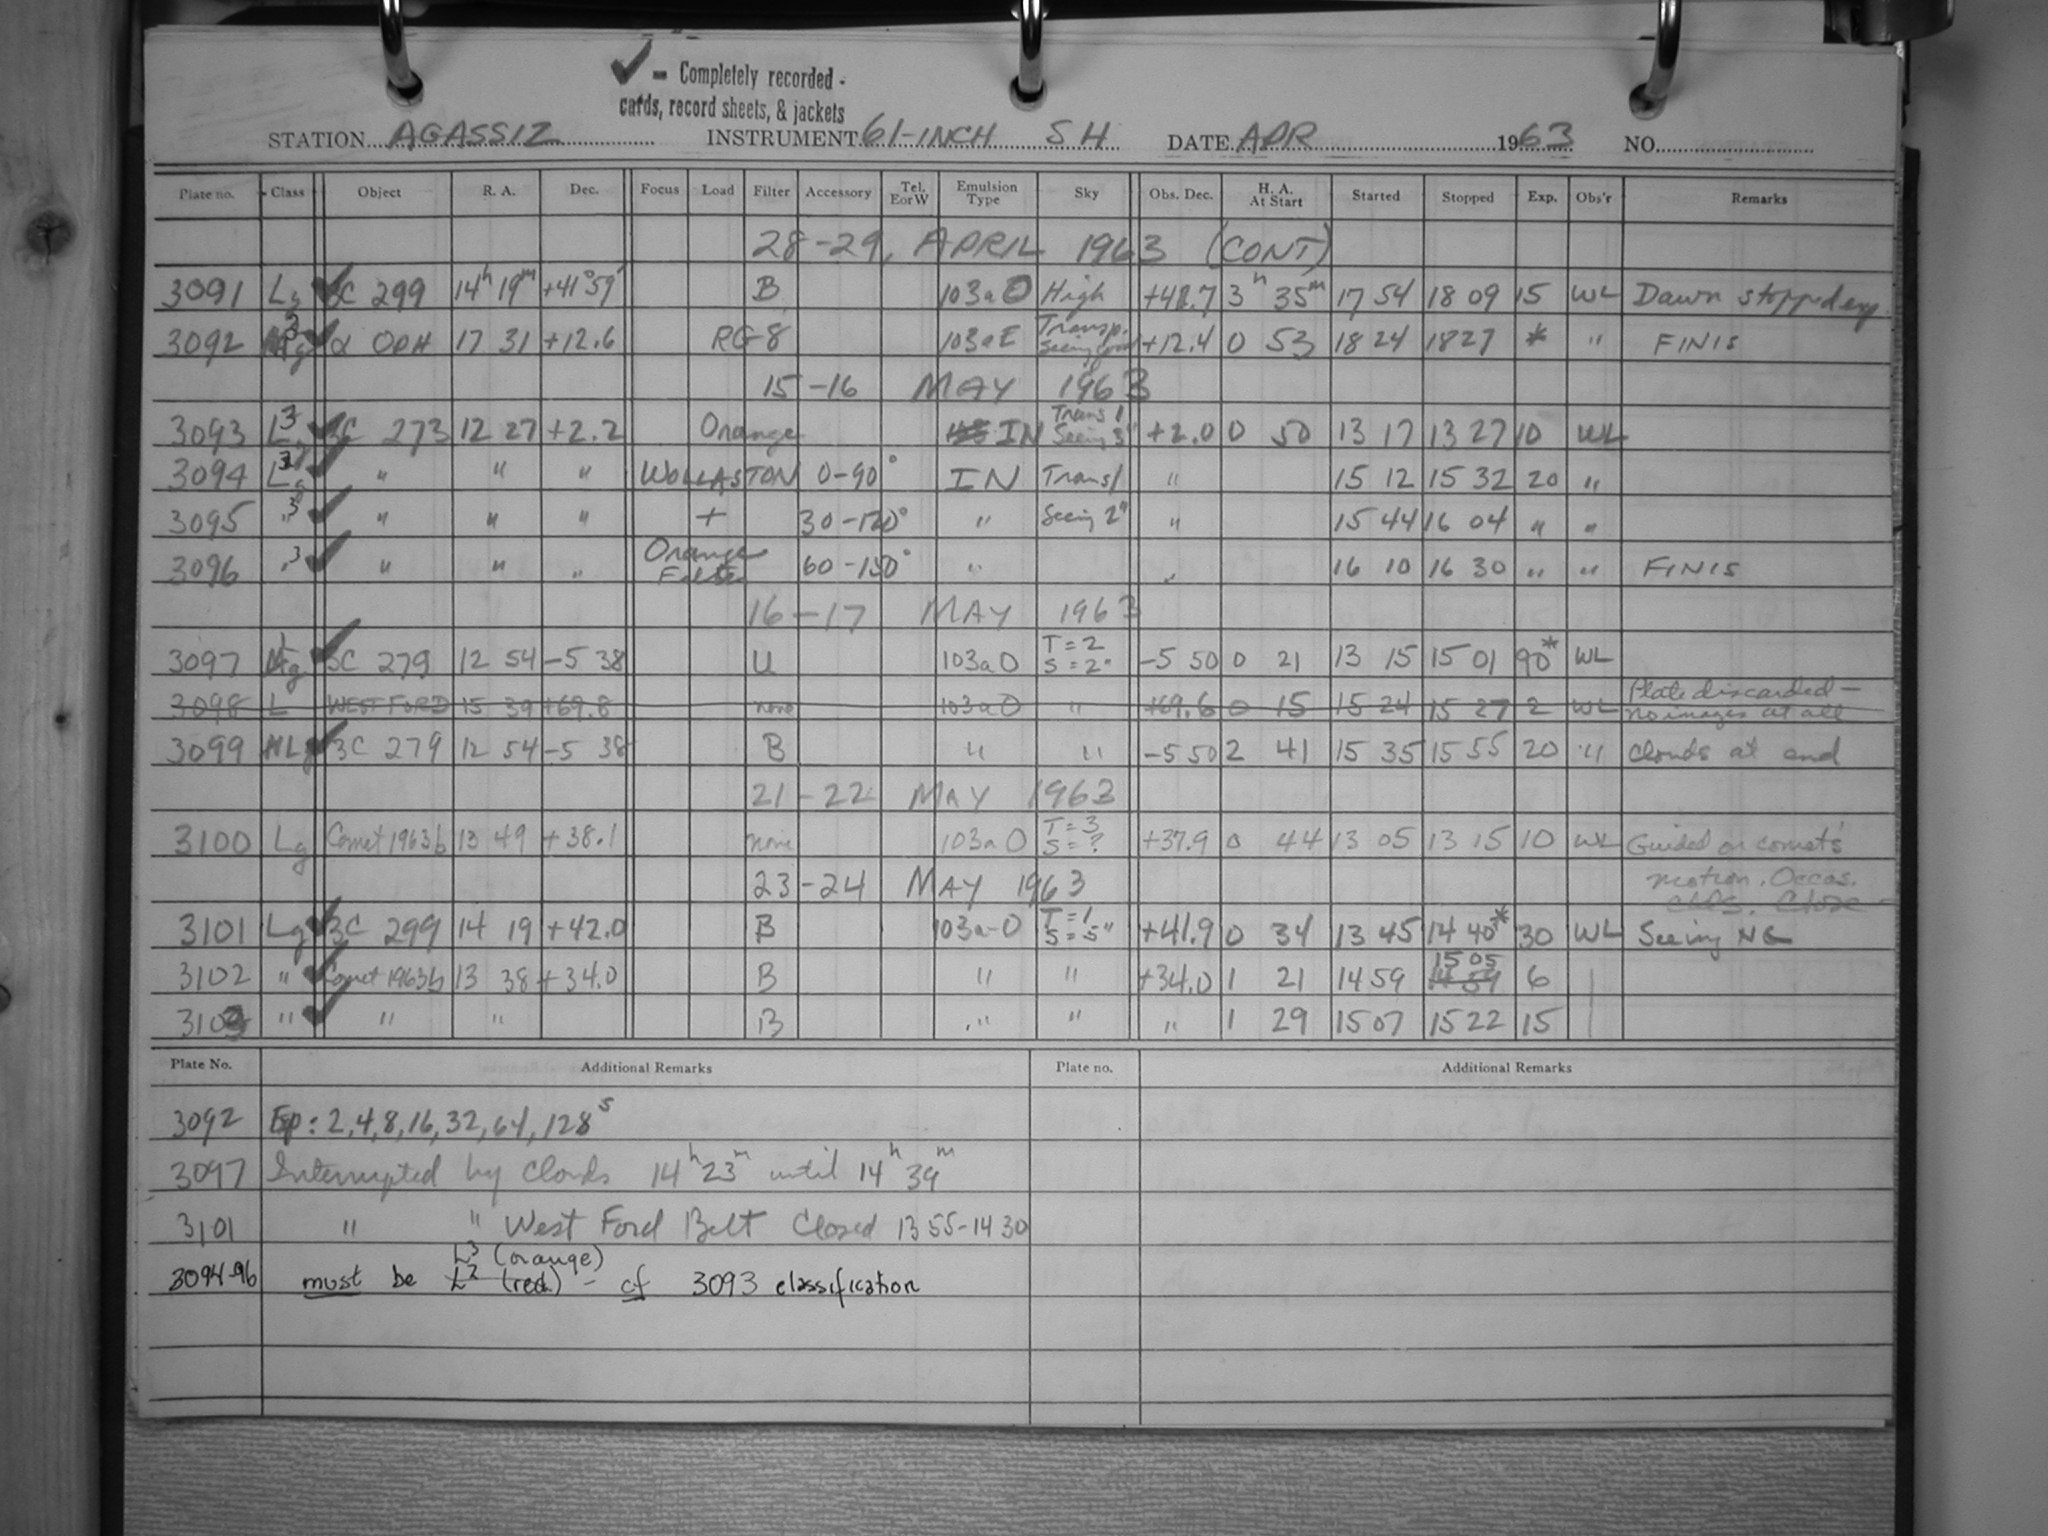 ✓ = Completely recorded -
cards, record sheets, & jackets
STATION AGASSIZ INSTRUMENT 61-INCH SH DATE APR 1963 NO.
Plate no. Class Object R. A. Dec. Focus Load Filter Accessory Tel. E or W Emulsion Type Sky Obs. Dec. H. A. At Start Started Stopped Exp. Obs'r Remarks
28-29, APRIL 1963 (CONT)
3091 3C 299 14h 19m +41° 59' B 103aO High 3h 35m 17 54 18 09 15 WL Dawn stopped exp.
3092 α OPH 17 31 +12.6 RG-8 103aE Transp. +12.4 0 53 18 24 18 27 * " FINIS
15-16 MAY 1963
3093 3C 273 12 27 +2.2 Orange IN Trans 1 Seeing 3" +2.0 0 50 13 17 13 27 10 WL
3094 " " " WOLLASTON 0-90° IN Trans 1 " 15 12 15 32 20 "
3095 " 3 " " " + 30-120° " Seeing 2" " 15 44 16 04 " "
3096 " 3 " " " Orange Filter 60-150° " " 16 10 16 30 " " FINIS
16-17 MAY 1963
3097 3C 279 12 54 -5 38 U 103aO T=2 S=2" -5 50 0 21 13 15 15 01 90* WL
3098 L WESTFORD 15 39 +69.8 none 103aO " +69.6 0 15 15 24 15 27 2 WL Plate discarded - no images at all
3099 3C 279 12 54 -5 38 B " " -5 50 2 41 15 35 15 55 20 " Clouds at end
21-22 MAY 1963
3100 Lg Comet 1963b 13 49 +38.1 none 103aO T=3 S=? +37.9 0 44 13 05 13 15 10 WL Guided on comet's
23-24 MAY 1963 motion. Occas.
3101 Lg 3C 299 14 19 +42.0 B 103a-O T=1 S=5" +41.9 0 34 13 45 14 40* 30 WL Seeing NG
3102 " Comet 1963b 13 38 +34.0 B " " +34.0 1 21 14 59 15 05 6
3103 " " " B " " " 1 29 15 07 15 22 15
Plate No. Additional Remarks Plate no. Additional Remarks
3092 Exp: 2, 4, 8, 16, 32, 64, 128s
3097 Interrupted by Clouds 14h 23m until 14h 39m
3101 " " West Ford Belt Closed 13 55-14 30
L3 (orange)
3094-96 must be L2 (red) - cf 3093 classification